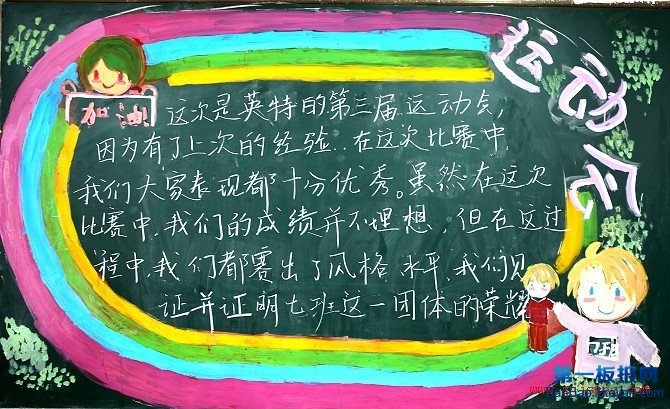 运动会
加油!
这次是英特的第三届运动会,
因为有了上次的经验..在这次比赛中
我们大家表现都十分优秀。虽然在这次
比赛中,我们的成绩并不理想,但在这过
程中,我们都赛出了风格水平,我们见
证并证明七班这一团体的荣耀
7班
第一板报网